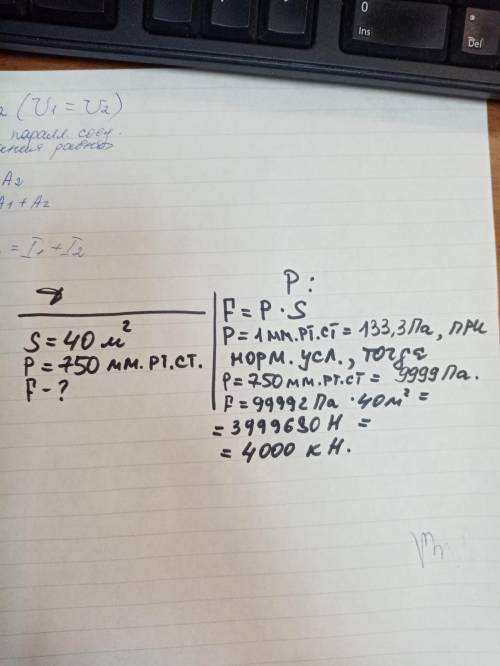 0
Ins
Del
2 (U1 = U2)
паралл. соед.
A2
A1 + A2
= I1 + I2
P:
S = 40 м²
P = 750 мм.рт.ст.
F - ?
F = P · S
P = 1 мм.рт.ст = 133,3 Па, при
норм. усл., тогда
P = 750 мм.рт.ст = 9999 Па.
F = 99992 Па · 40 м² =
= 3999680 Н =
= 4000 кН.